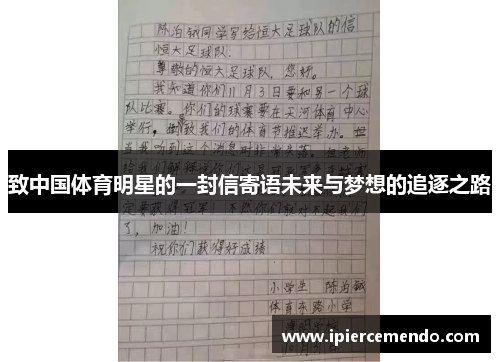 陈泊钺同学写给恒大足球队的信
恒大足球队:
尊敬的恒大足球队,您好。
我知道你们11月3日要和另一个球
队比赛。你们的球赛要在天河体育中心
举行。导致我们的体育节推迟举办。但
当我听到这个消息时非常失落。但老师
致中国体育明星的一封信寄语未来与梦想的追逐之路
定要获得冠军!不然你们就对不起我们
了,加油!
祝你们获得好成绩
小学生 陈泊钺
体育东路小学
www.ipiercemendo.com